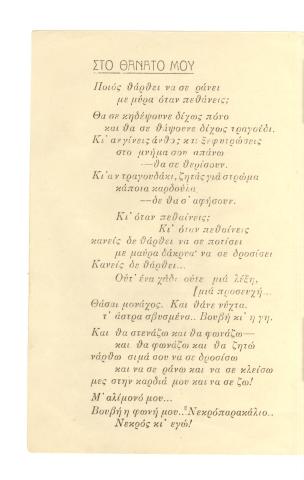 ΣΤΟ ΘΑΝΑΤΟ ΜΟΥ
Ποιός θάρθει να σε ράνει
με μύρα όταν πεθάνεις;
Θα σε κηδέψουνε δίχως πόνο
και θα σε θάψουνε δίχως τραγούδι.
Κι' αν γίνεις άνθος κι ξεφυτρώσεις
στο μνήμα σου απάνω
—θα σε θερίσουν.
Κι' αν τραγουδάκι, ζητάς γιά στρώμα
κάποια καρδούλα
—δε θα σ' αφήσουν.
Κι' όταν πεθαίνεις;
Κι' όταν πεθαίνεις
κανείς δε θάρθει να σε ποτίσει
με μαύρα δάκρυα να σε δροσίσει
Κανείς δε θάρθει...
Ούτ' ένα χάδι ούτε μιά λέξη,
[μιά προσευχή...
Θάσαι μονάχος. Και θάνε νύχτα.
τ' άστρα σβυσμένα.. Βουβή κι' η γη.
Και θα στενάζω και θα φωνάζω—
και θα φωνάζω και θα ζητώ
νάρθω σιμά σου να σε δροσίσω
και να σε ράνω και να σε κλείσω
μες στην καρδιά μου και να σε ζω!
Μ' αλίμονό μου...
Βουβή η φωνή μου.. Νεκροπαρακάλιο..
Νεκρός κι' εγώ!